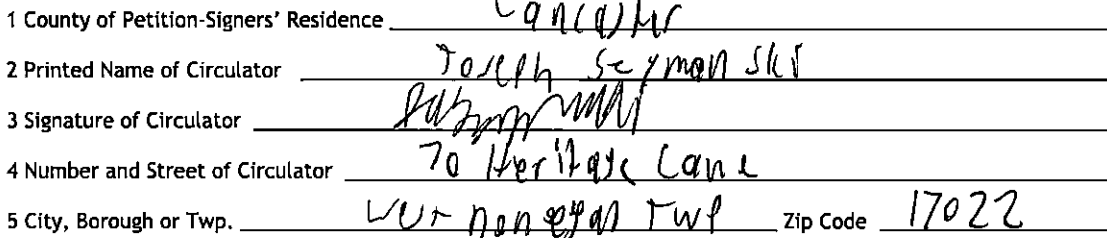 1 County of Petition-Signers' Residence Lancaster
2 Printed Name of Circulator Joseph Seymanski
3 Signature of Circulator
4 Number and Street of Circulator 70 Heritage Lane
5 City, Borough or Twp. Twp Zip Code 17022